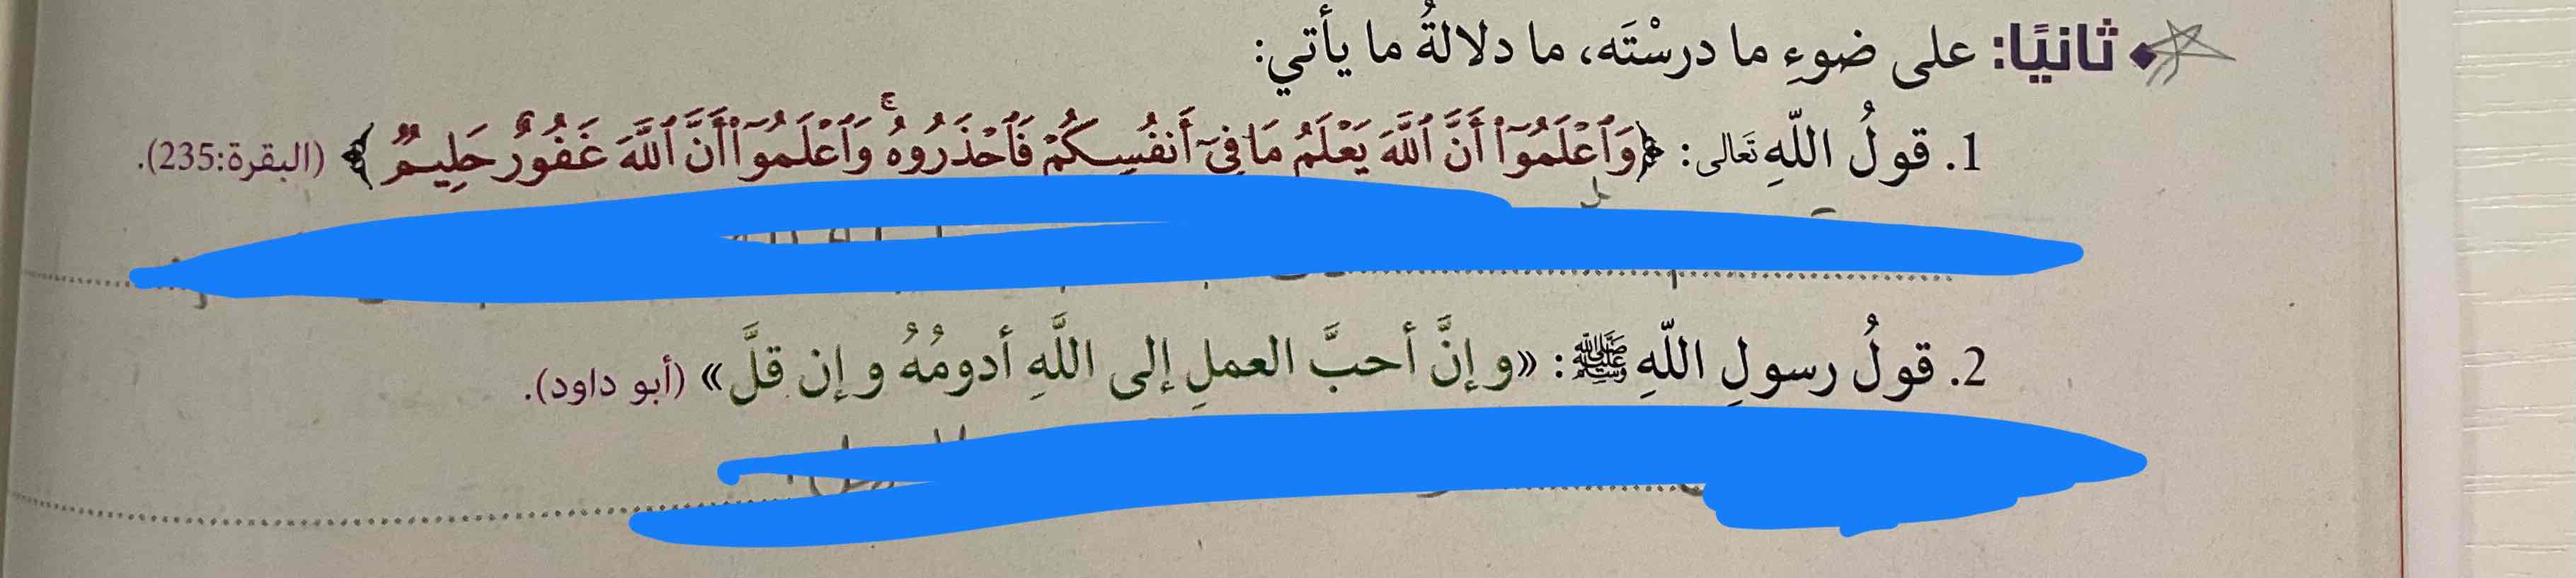 ثانيًا: على ضوءِ ما درسْتَه، ما دلالةُ ما يأتي:
1. قولُ اللّهِ تَعَالى: ﴿وَٱعۡلَمُوٓاْ أَنَّ ٱللَّهَ يَعۡلَمُ مَا فِيٓ أَنفُسِكُمۡ فَٱحۡذَرُوهُۚ وَٱعۡلَمُوٓاْ أَنَّ ٱللَّهَ غَفُورٌ حَلِيمٌ﴾ (البقرة:235).
2. قولُ رسولِ اللّهِ ﷺ: «وإنَّ أحبَّ العملِ إلى اللَّهِ أدومُهُ وإن قلَّ» (أبو داود).